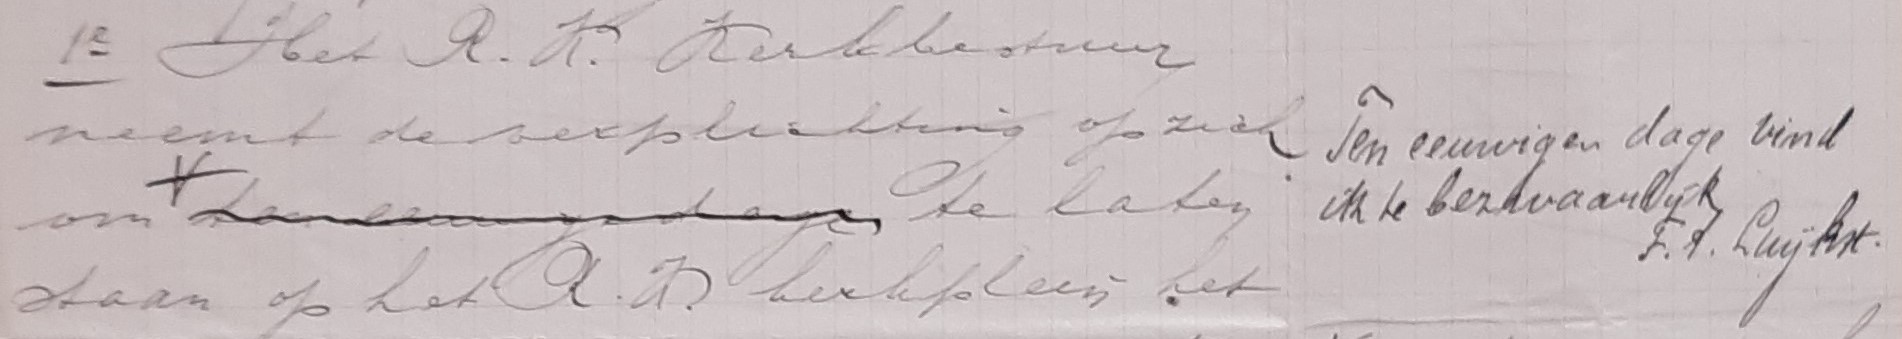 1e Het R. K. Kerkbestuur
neemt de verplichting op zich
om ten eeuwige dage te laten
staan op het R. K. kerkplein het
Ten eeuwigen dage vind
ik te bezwaarlijk
F. A. Luijkx.